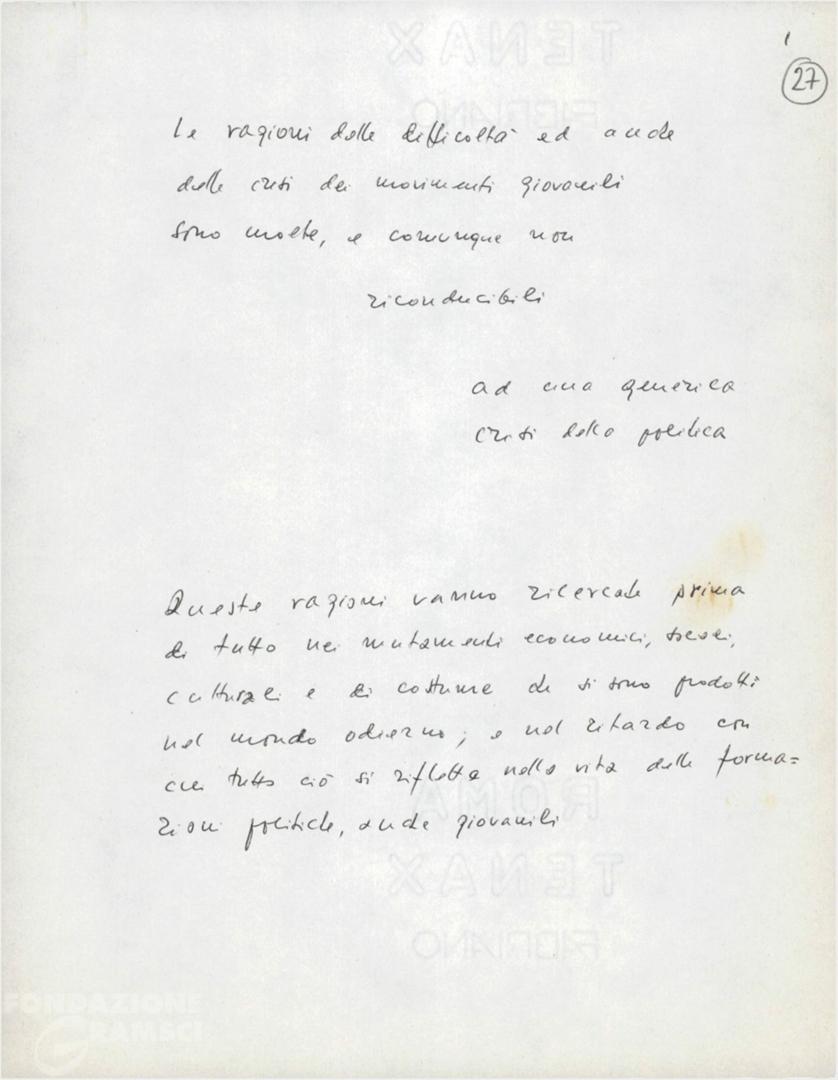 27
Le ragioni delle difficoltà ed anche
della crisi dei movimenti giovanili
sono molte, e comunque non
riconducibili
ad una generica
crisi della politica
Queste ragioni vanno ricercate prima
di tutto nei mutamenti economici, sociali,
culturali e di costume che si sono prodotti
nel mondo odierno; e nel ritardo con
cui tutto ciò si riflette nella vita delle forma=
zioni politiche, anche giovanili
ROMA
TENAX
FABRIANO
TENAX
FABRIANO
FONDAZIONE
GRAMSCI